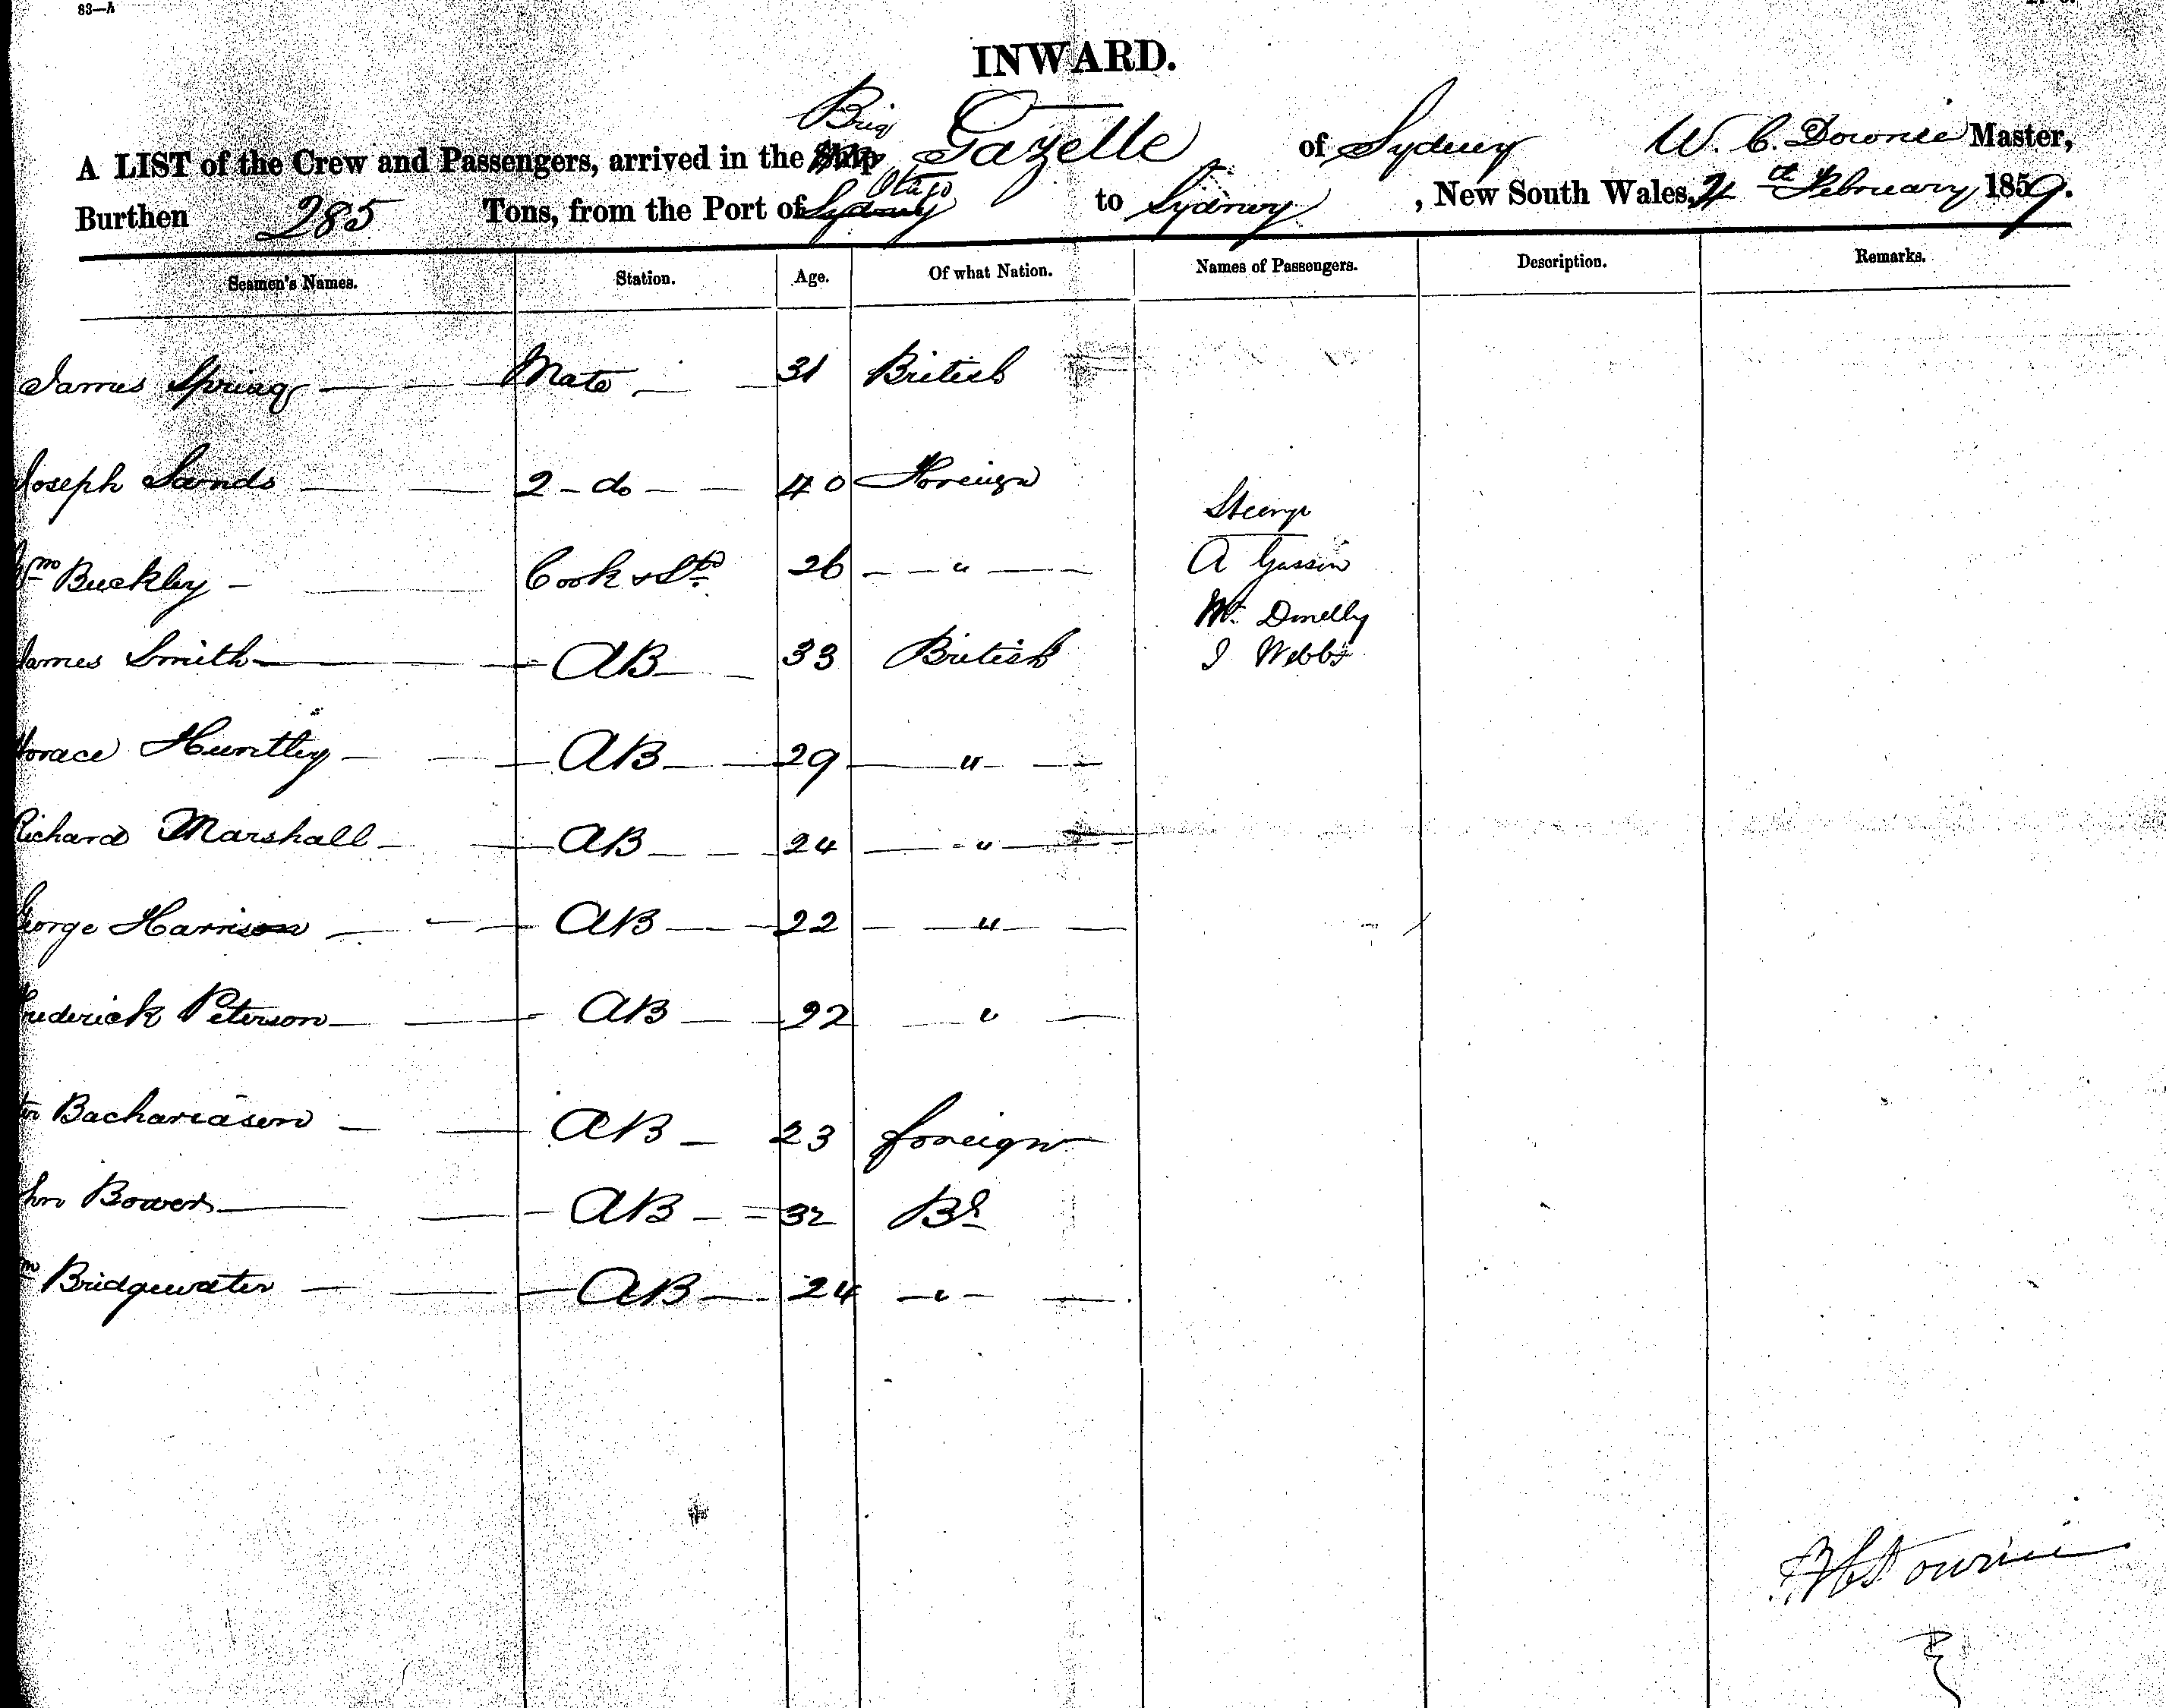 83—A
INWARD.
Brig
A LIST of the Crew and Passengers, arrived in the Ship Gazelle of Sydney W. C. Downie Master,
Otago
Burthen 285 Tons, from the Port of Sydney to Sydney, New South Wales, 4th February 1859.
Seamen's Names. Station. Age. Of what Nation. Names of Passengers. Description. Remarks.
James Spring — Mate — 31 British
Joseph Sands — 2 - do — 40 Foreign
Steerage
Wm Buckley — Cook & Std 26 — " — A
Mr Donelly
James Smith — AB — 33 British J Webb
Horace Huntley — AB — 29 — " —
Richard Marshall — AB — 24 — " —
George Harrison — AB — 22 — " —
Frederick Peterson — AB — 22 — " —
Bachariasen — AB — 23 foreign
hn Bower — AB — 32 Bh
m Bridgewater — AB — 24 — " —
W C Downie